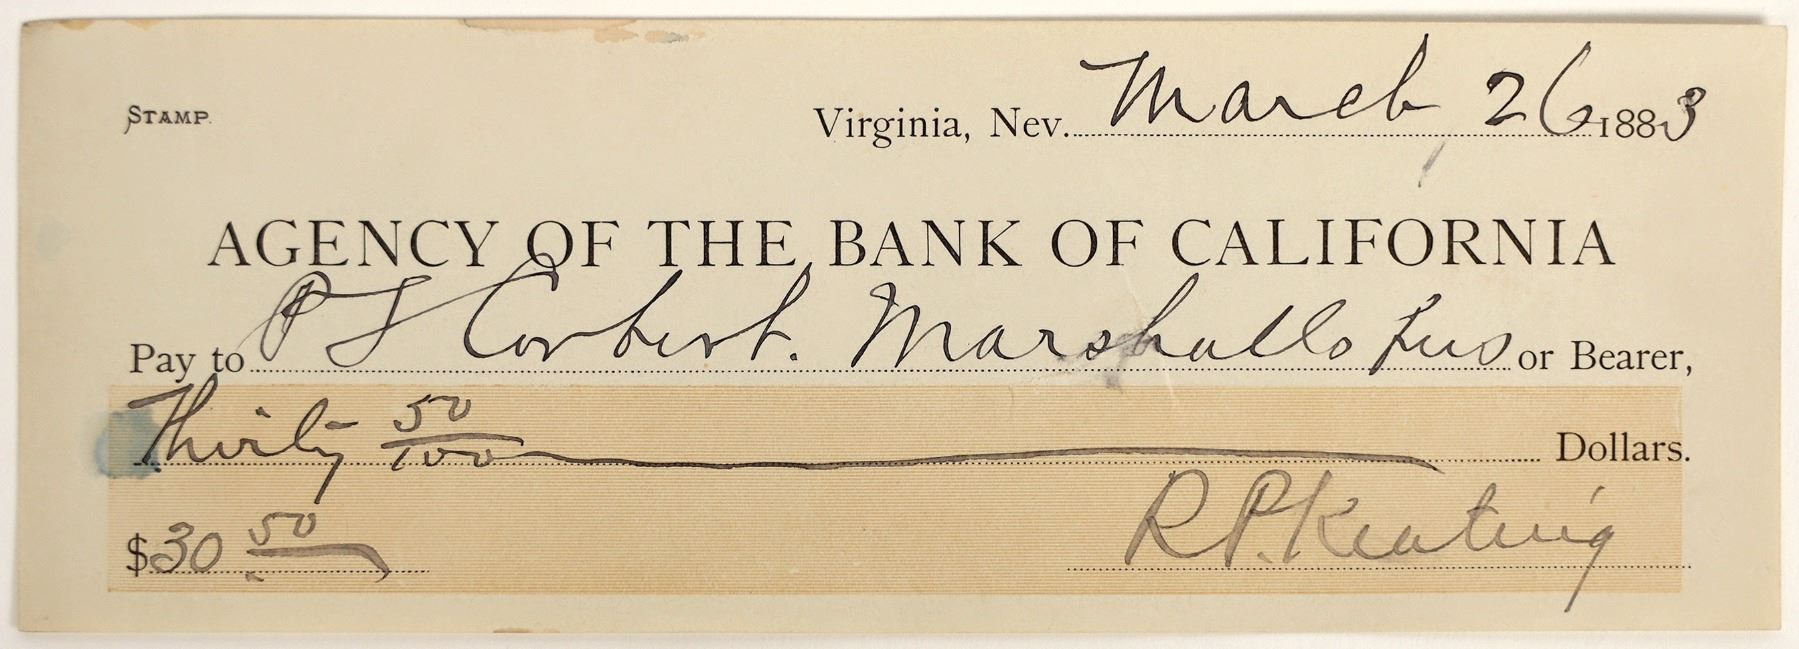 STAMP.
Virginia, Nev. March 26 1883
AGENCY OF THE BANK OF CALIFORNIA
Pay to P S Corbert. Marshalls Fees or Bearer,
Thirty 50/100 Dollars.
$30 50
R P. Keating